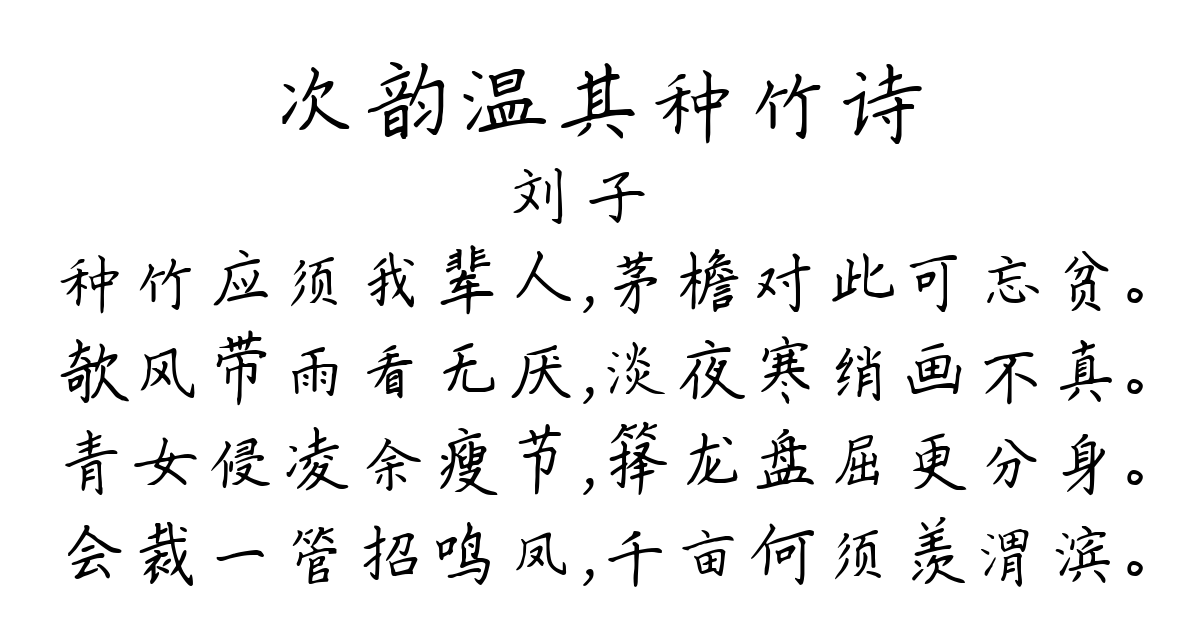 次韵温其种竹诗
刘子
种竹应须我辈人,茅檐对此可忘贫。
欹风带雨看无厌,淡夜寒绡画不真。
青女侵凌余瘦节,箨龙盘屈更分身。
会裁一管招鸣凤,千亩何须羡渭滨。